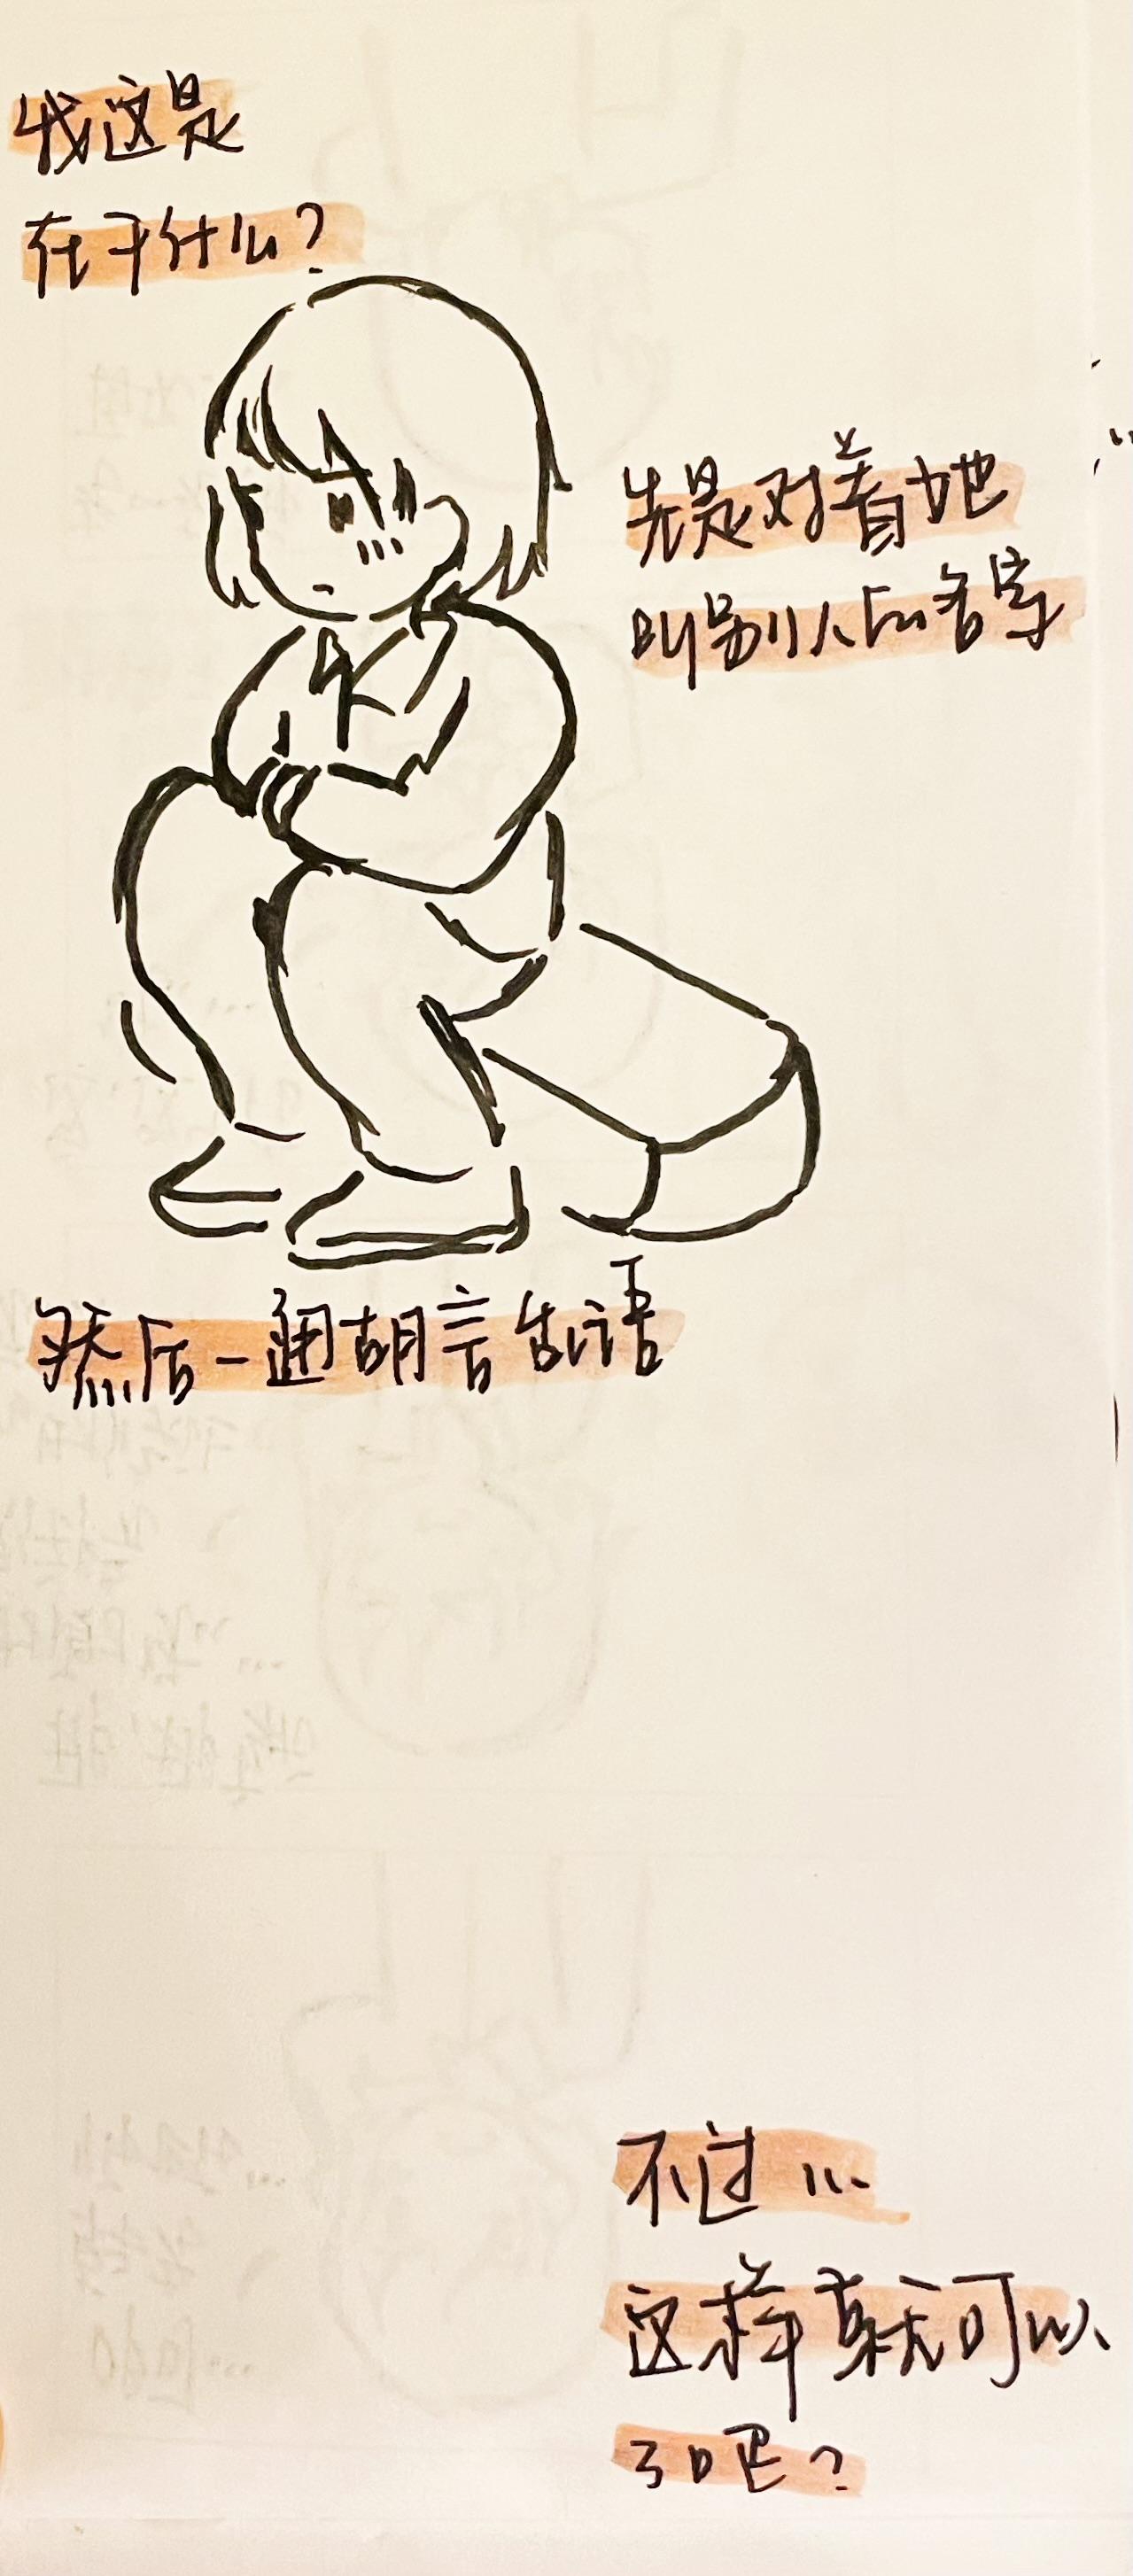 我这是
在干什么？
先是对着她
叫别人的名字
然后一通胡言乱语
不过…
这样就可以
了吧？